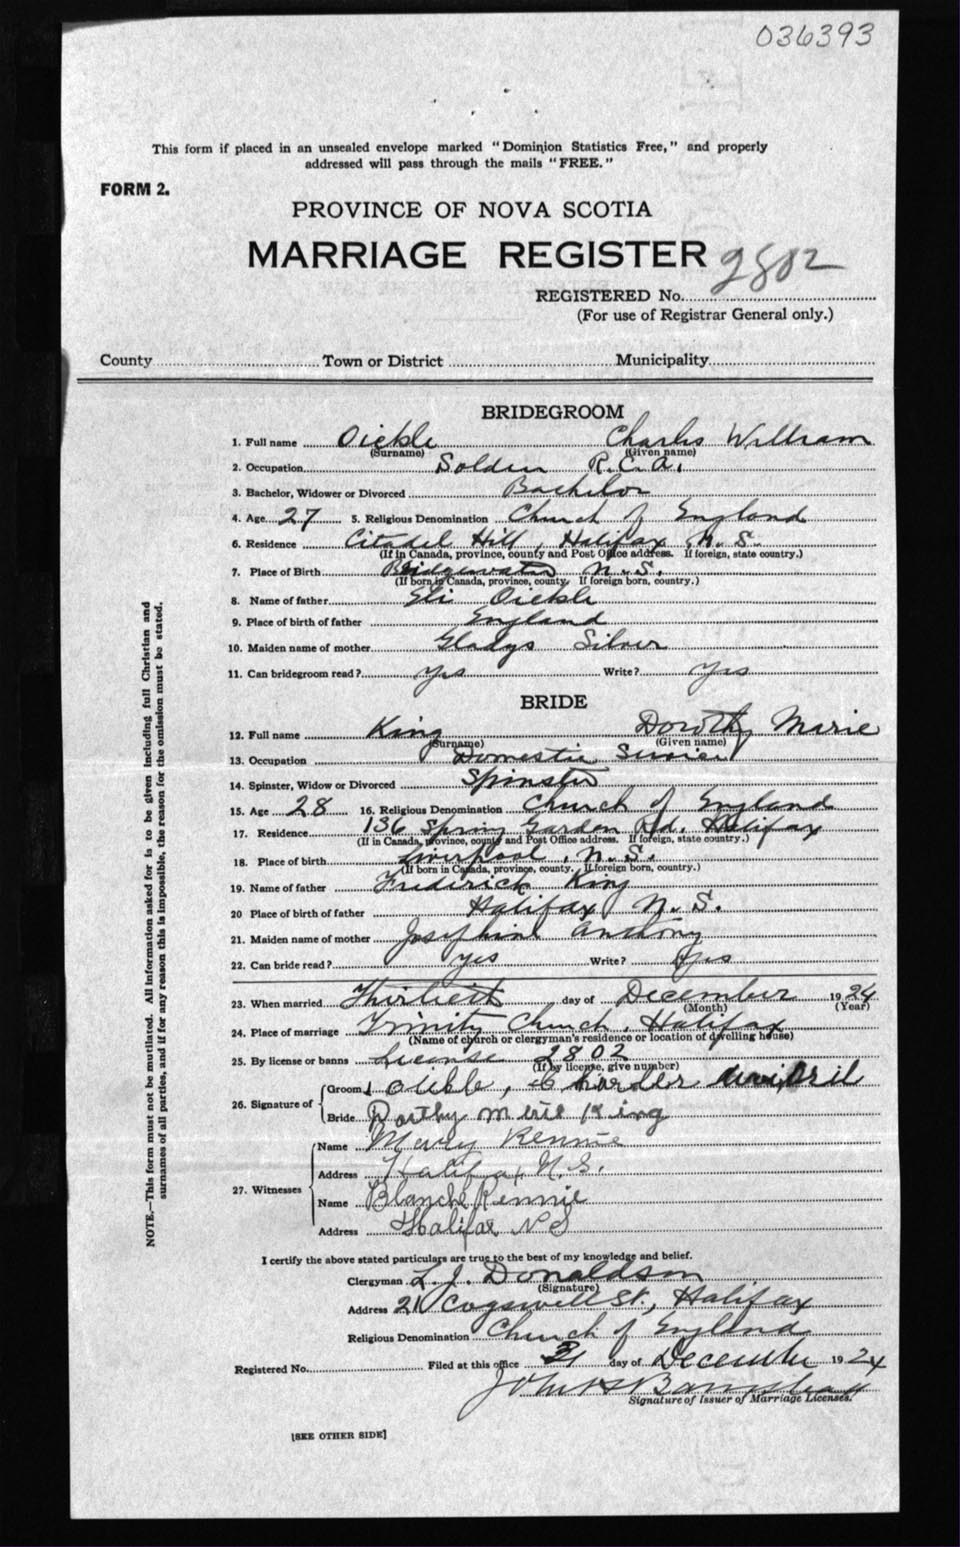 036393
This form if placed in an unsealed envelope marked "Dominion Statistics Free," and properly
addressed will pass through the mails "FREE."
FORM 2.
PROVINCE OF NOVA SCOTIA
MARRIAGE REGISTER 2802
REGISTERED No.
(For use of Registrar General only.)
County Town or District Municipality
BRIDEGROOM
1. Full name Oickle Charles William
(Surname) (Given name)
2. Occupation Soldier R.C.A.
3. Bachelor, Widower or Divorced Bachelor
4. Age 27 5. Religious Denomination Church of England
6. Residence Citadel Hill, Halifax N.S.
(If in Canada, province, county and Post Office address. If foreign, state country.)
7. Place of Birth Bridgewater N.S.
(If born in Canada, province, county. If foreign born, country.)
8. Name of father Eli Oickle
9. Place of birth of father England
10. Maiden name of mother Gladys Silver
11. Can bridegroom read? Yes Write? Yes
BRIDE
12. Full name King Dorothy Marie
(Surname) (Given name)
13. Occupation Domestic Servien
14. Spinster, Widow or Divorced Spinster
15. Age 28 16. Religious Denomination Church of England
17. Residence 136 Spring Garden Rd. Halifax
(If in Canada, province, county and Post Office address. If foreign, state country.)
18. Place of birth Liverpool, N.S.
(If born in Canada, province, county. If foreign born, country.)
19. Name of father Frederick King
20 Place of birth of father Halifax N.S.
21. Maiden name of mother Josephine Anthony
22. Can bride read? Yes Write? Yes
23. When married Thirtieth day of December 1924
(Month) (Year)
24. Place of marriage Trinity Church, Halifax
(Name of church or clergyman's residence or location of dwelling house)
25. By license or banns License 2802
(If by license, give number)
26. Signature of Groom oickle,
Bride Dorthy merie King
27. Witnesses Name Mary Rennie
Address Halifax N.S.
Name Blanche Rennie
Address Halifax N S
I certify the above stated particulars are true to the best of my knowledge and belief.
Clergyman L. J. Donaldson
(Signature)
Address 21 Cogswell St., Halifax
Religious Denomination Church of England
Registered No. Filed at this office 31 day of December 1924
John H
Signature of Issuer of Marriage Licenses.
[SEE OTHER SIDE]
NOTE.—This form must not be mutilated. All information asked for is to be given including full Christian and
surnames of all parties, and if for any reason this is impossible, the reason for the omission must be stated.